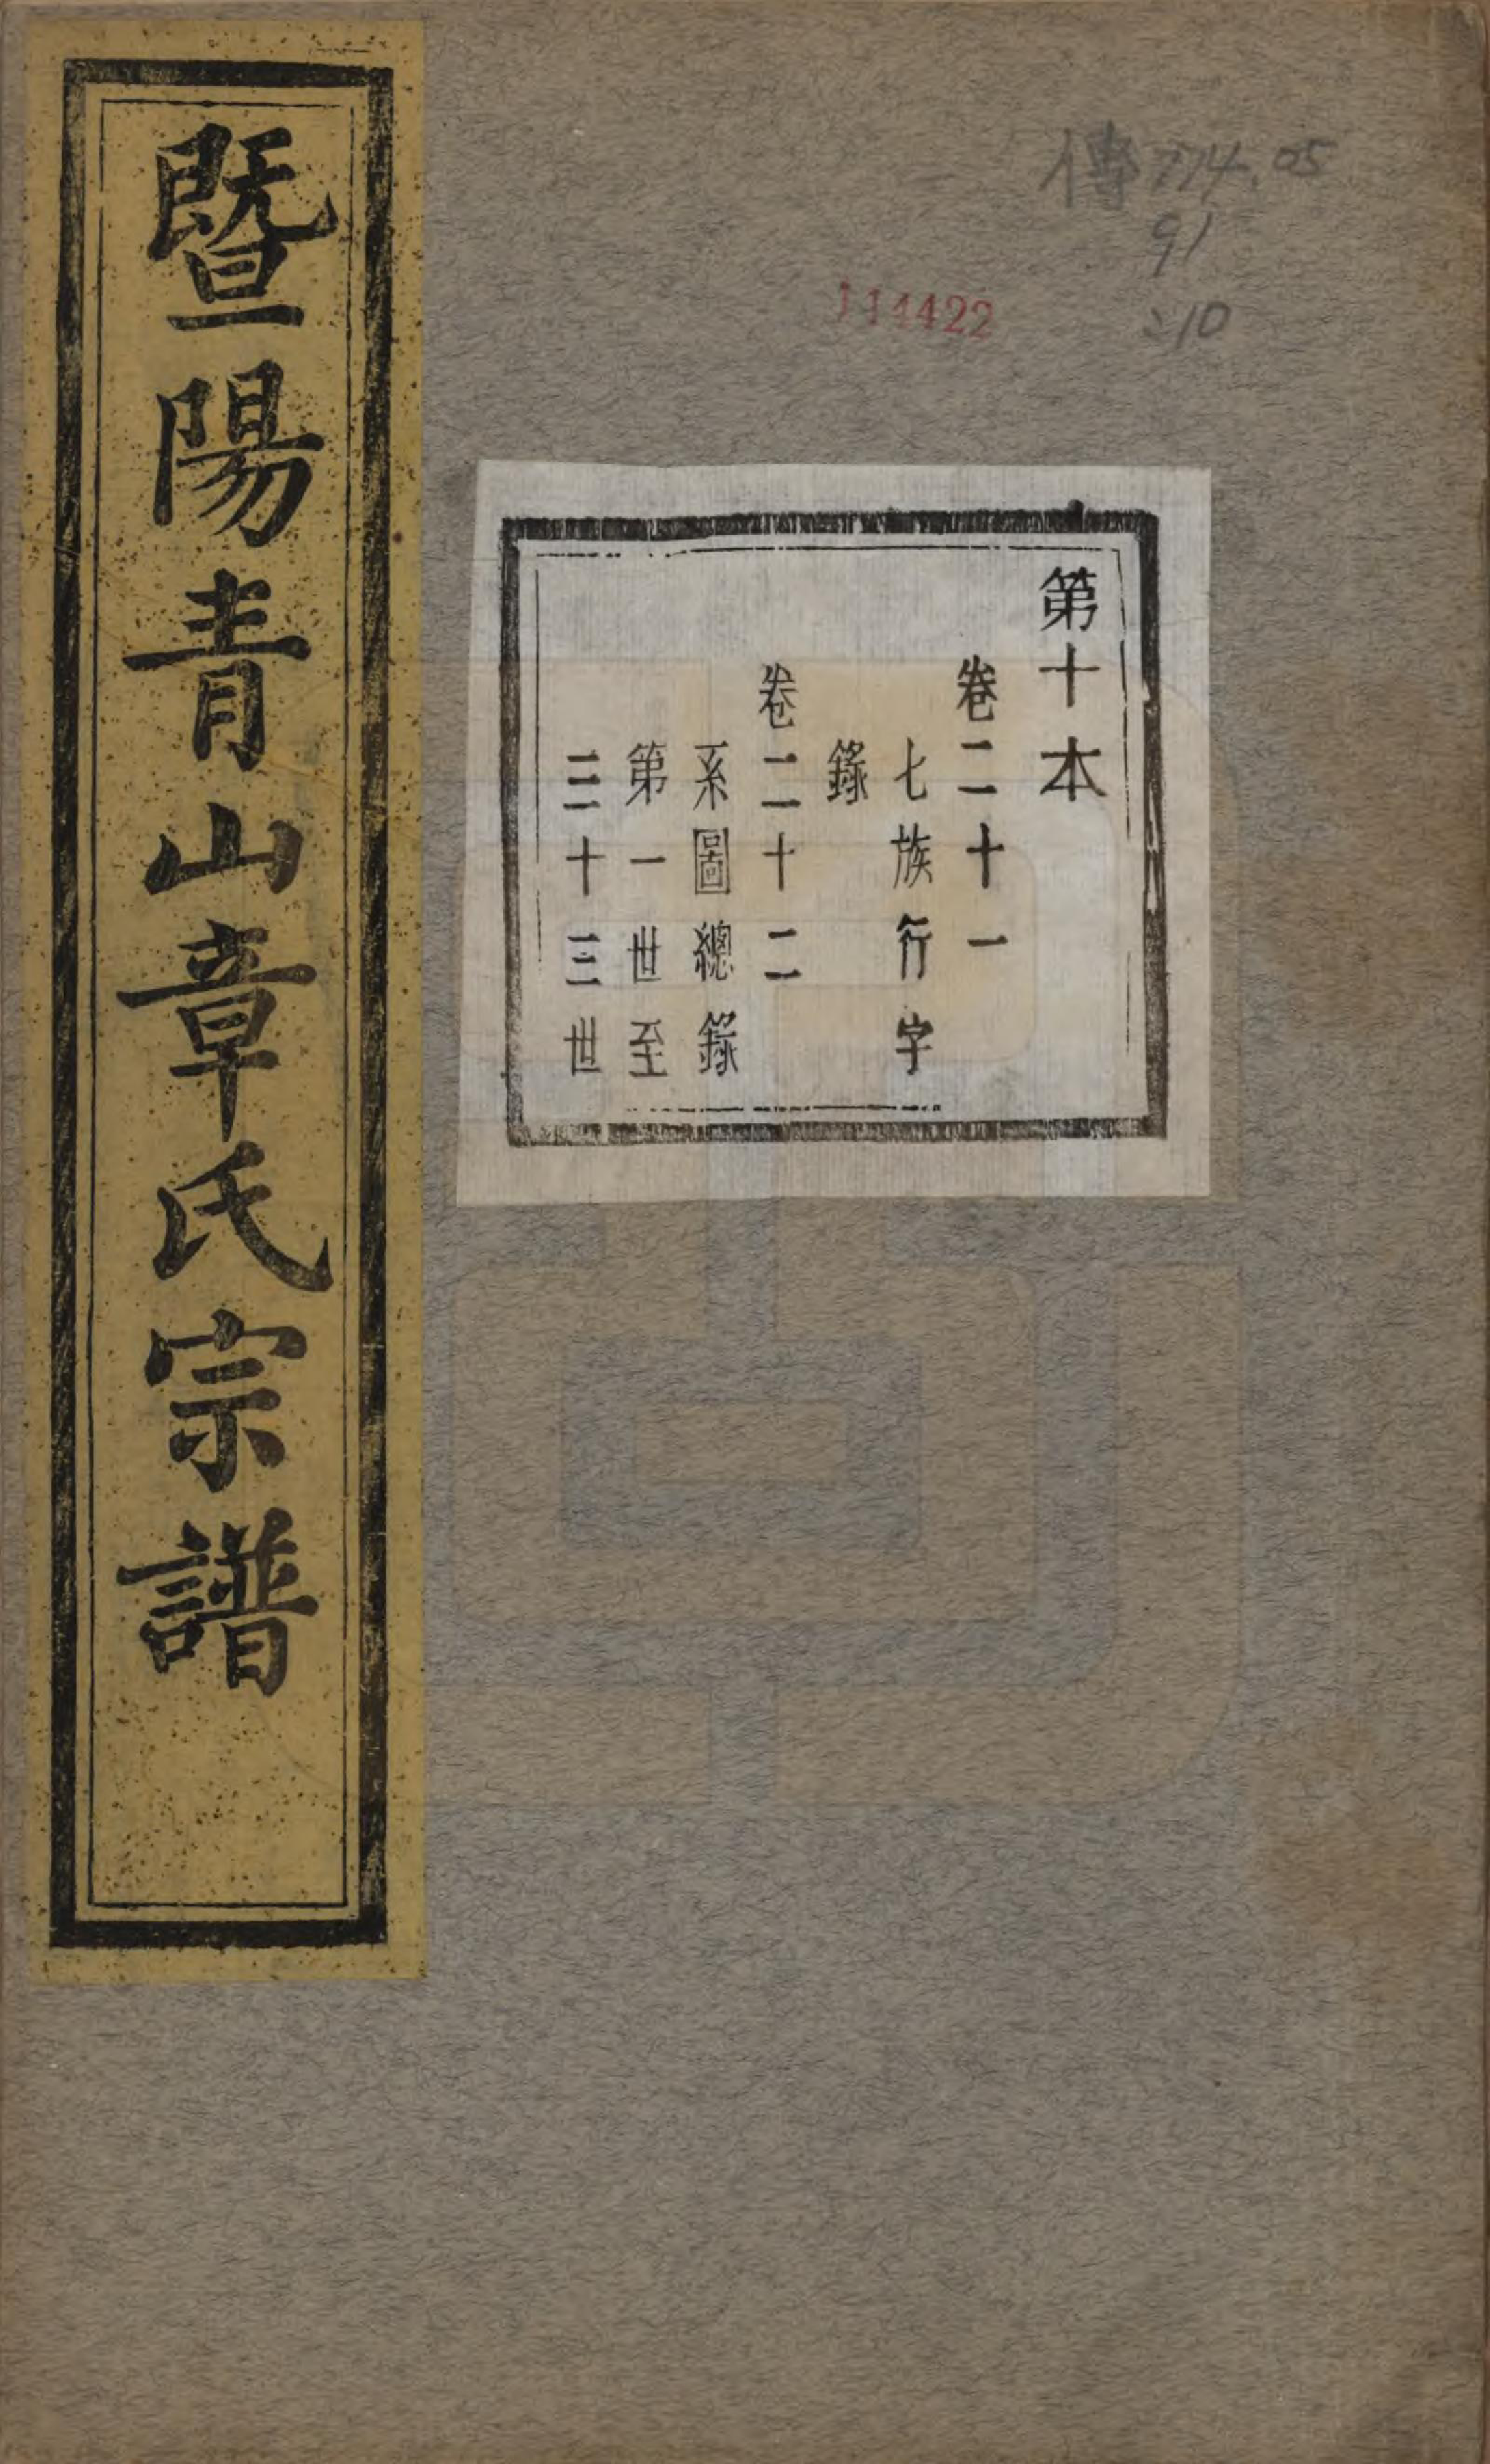 傳 774.05
91
:10
114422
第十本
卷二十一
七族行字
錄
卷二十二
系圖總錄
第一世至
三十三世
暨陽青山章氏宗譜